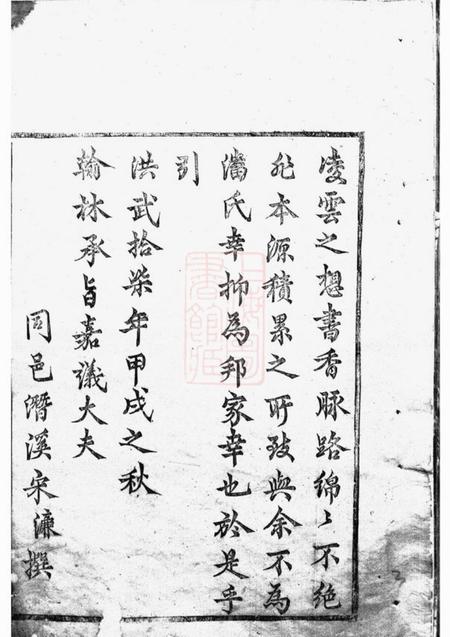 凌雲之想書香脉路綿〻不絶
非本源積累之所致與余不為
潘氏幸抑為邦家幸也於是乎
引
洪武拾柒年甲戌之秋
翰林承旨嘉議大夫
同邑潛溪宋濂撰